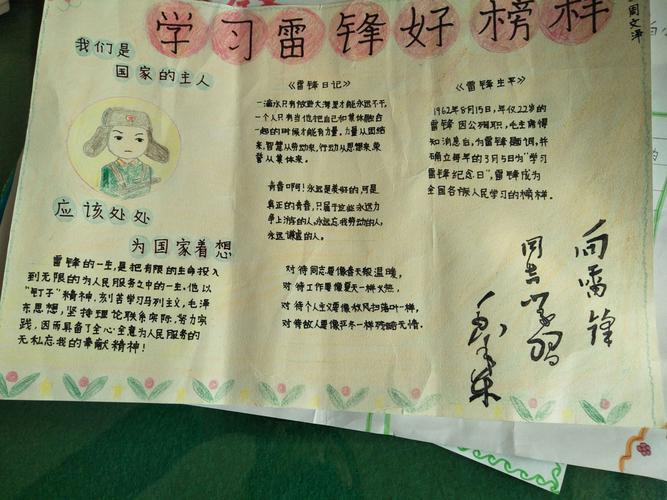 学习雷锋好榜样
周文泽
我们是
国家的主人
应该处处
为国家着想
雷锋的一生,是把有限的生命投入
到无限的为人民服务之中的一生。他以
"钉子"精神,刻苦学习马列主义,毛泽
东思想,坚持理论联系实际,努力实
践,因而具备了全心全意为人民服务的
无私忘我的奉献精神!
《雷锋日记》
一滴水只有放进大海里才能永远不干,
一个人只有当他把自己和集体融合
一起的时候才能有力量,力量从团结
来,智慧从劳动来,行动从思想来,荣
誉从集体来。
青春啊!永远是美好的,可是
真正的青春,只属于这些永远力
争上游的人,永远忘我劳动的人,
永远谦虚的人。
对待同志要像春天般温暖,
对待工作要像夏天一样火热,
对待个人主义要像秋风扫落叶一样,
对待敌人要像严冬一样残酷无情。
《雷锋生平》
1962年8月15日,年仅22岁的
雷锋因公殉职,毛主席得
知消息后,为雷锋题词,并
确立每年的3月5日为"学习
雷锋纪念日",雷锋成为
全国各族人民学习的榜样。
向雷锋
同志学习
毛泽东